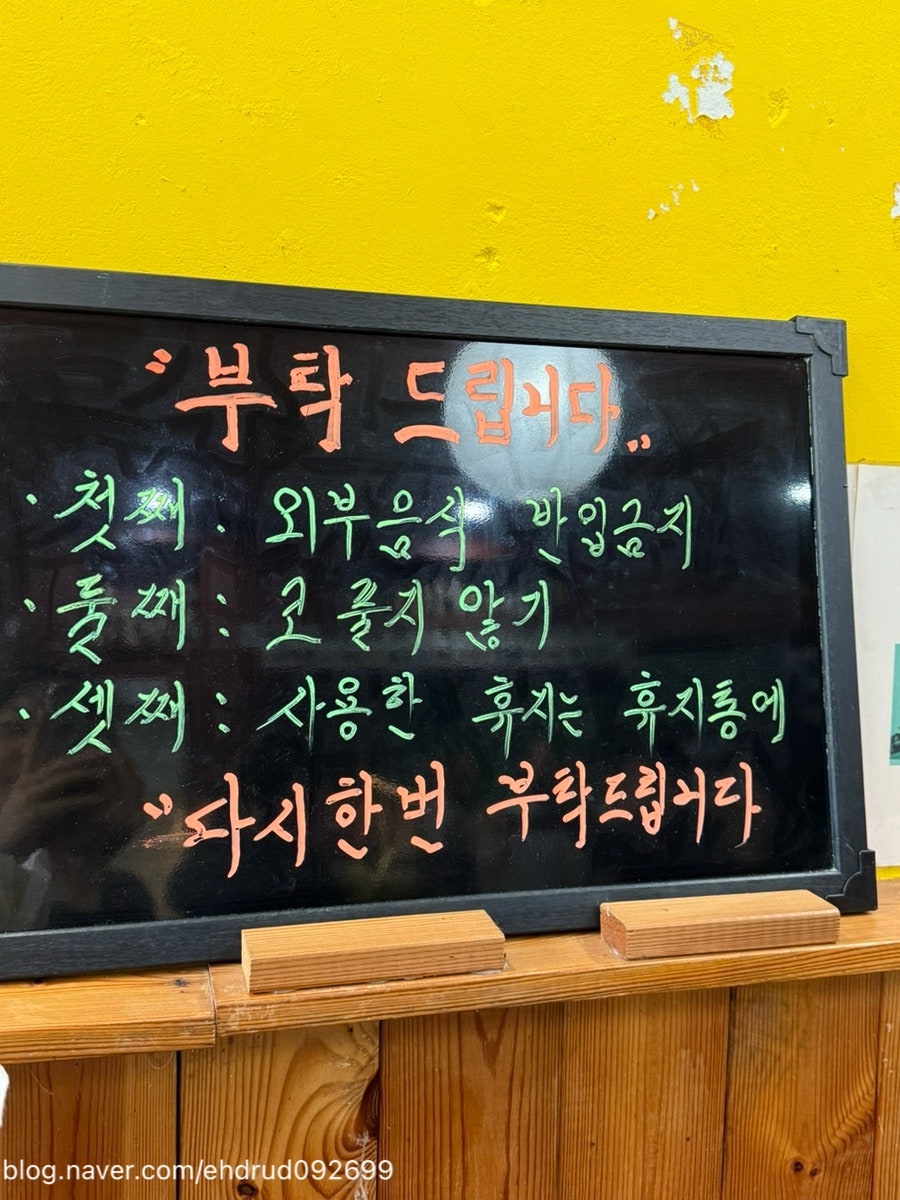 "부탁 드립니다"
· 첫째. 외부음식 반입금지
· 둘째: 코 풀지 않기
· 셋째: 사용한 휴지는 휴지통에
"다시한번 부탁드립니다
blog.naver.com/ehdrud092699